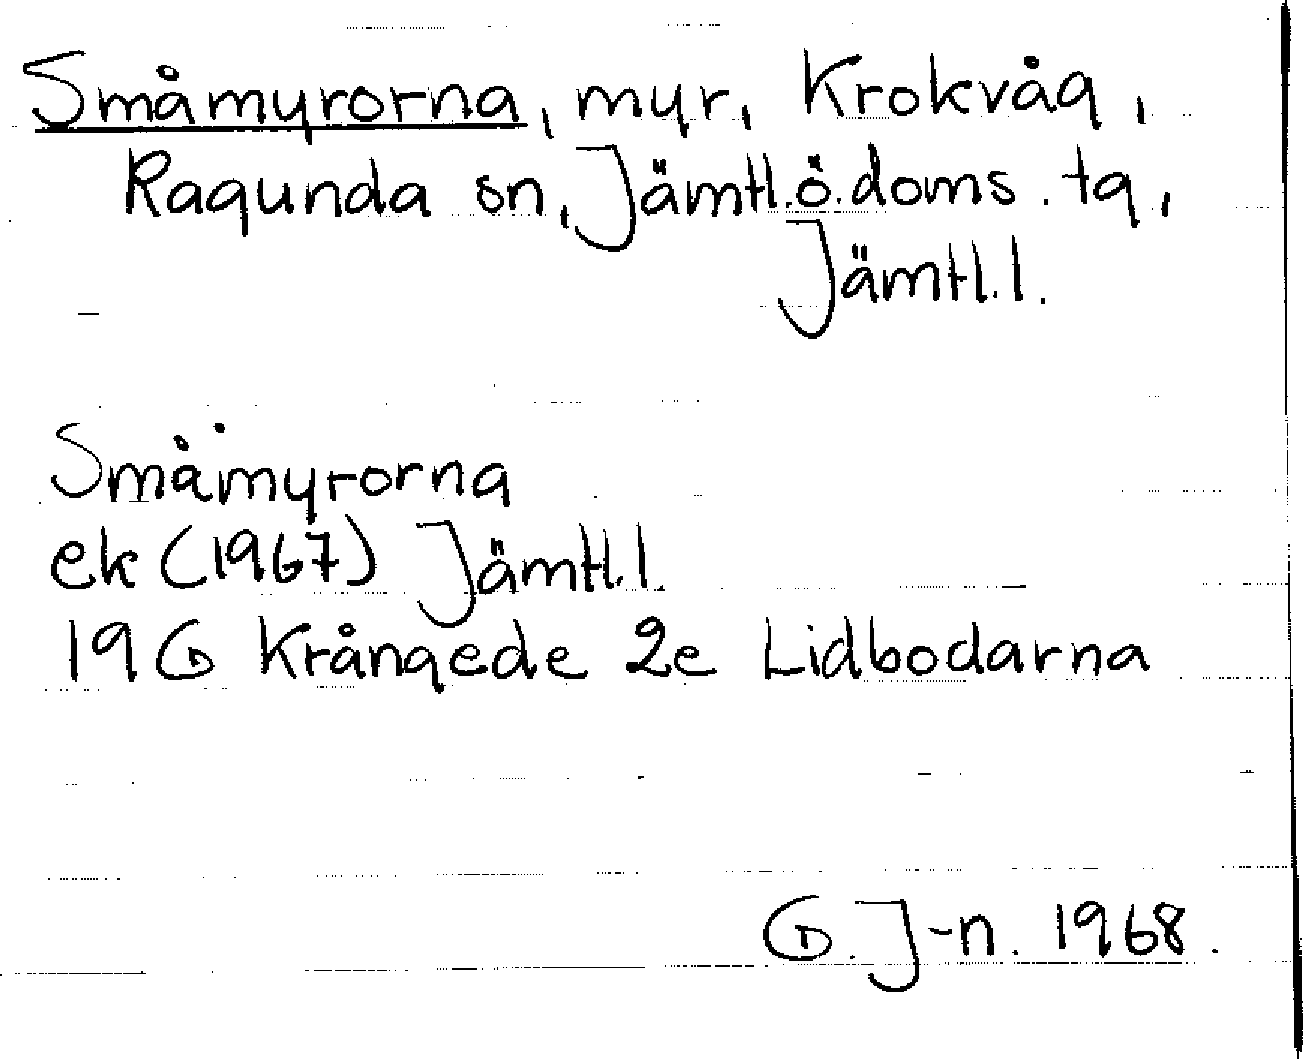 Småmyrorna, myr, Krokvåg,
Ragunda sn, Jämtl.ö.doms.tg,
Jämtl.l.
Småmyrorna
ek (1967) Jämtl.l.
19G Krångede 2e Lidbodarna
G. J-n. 1968.